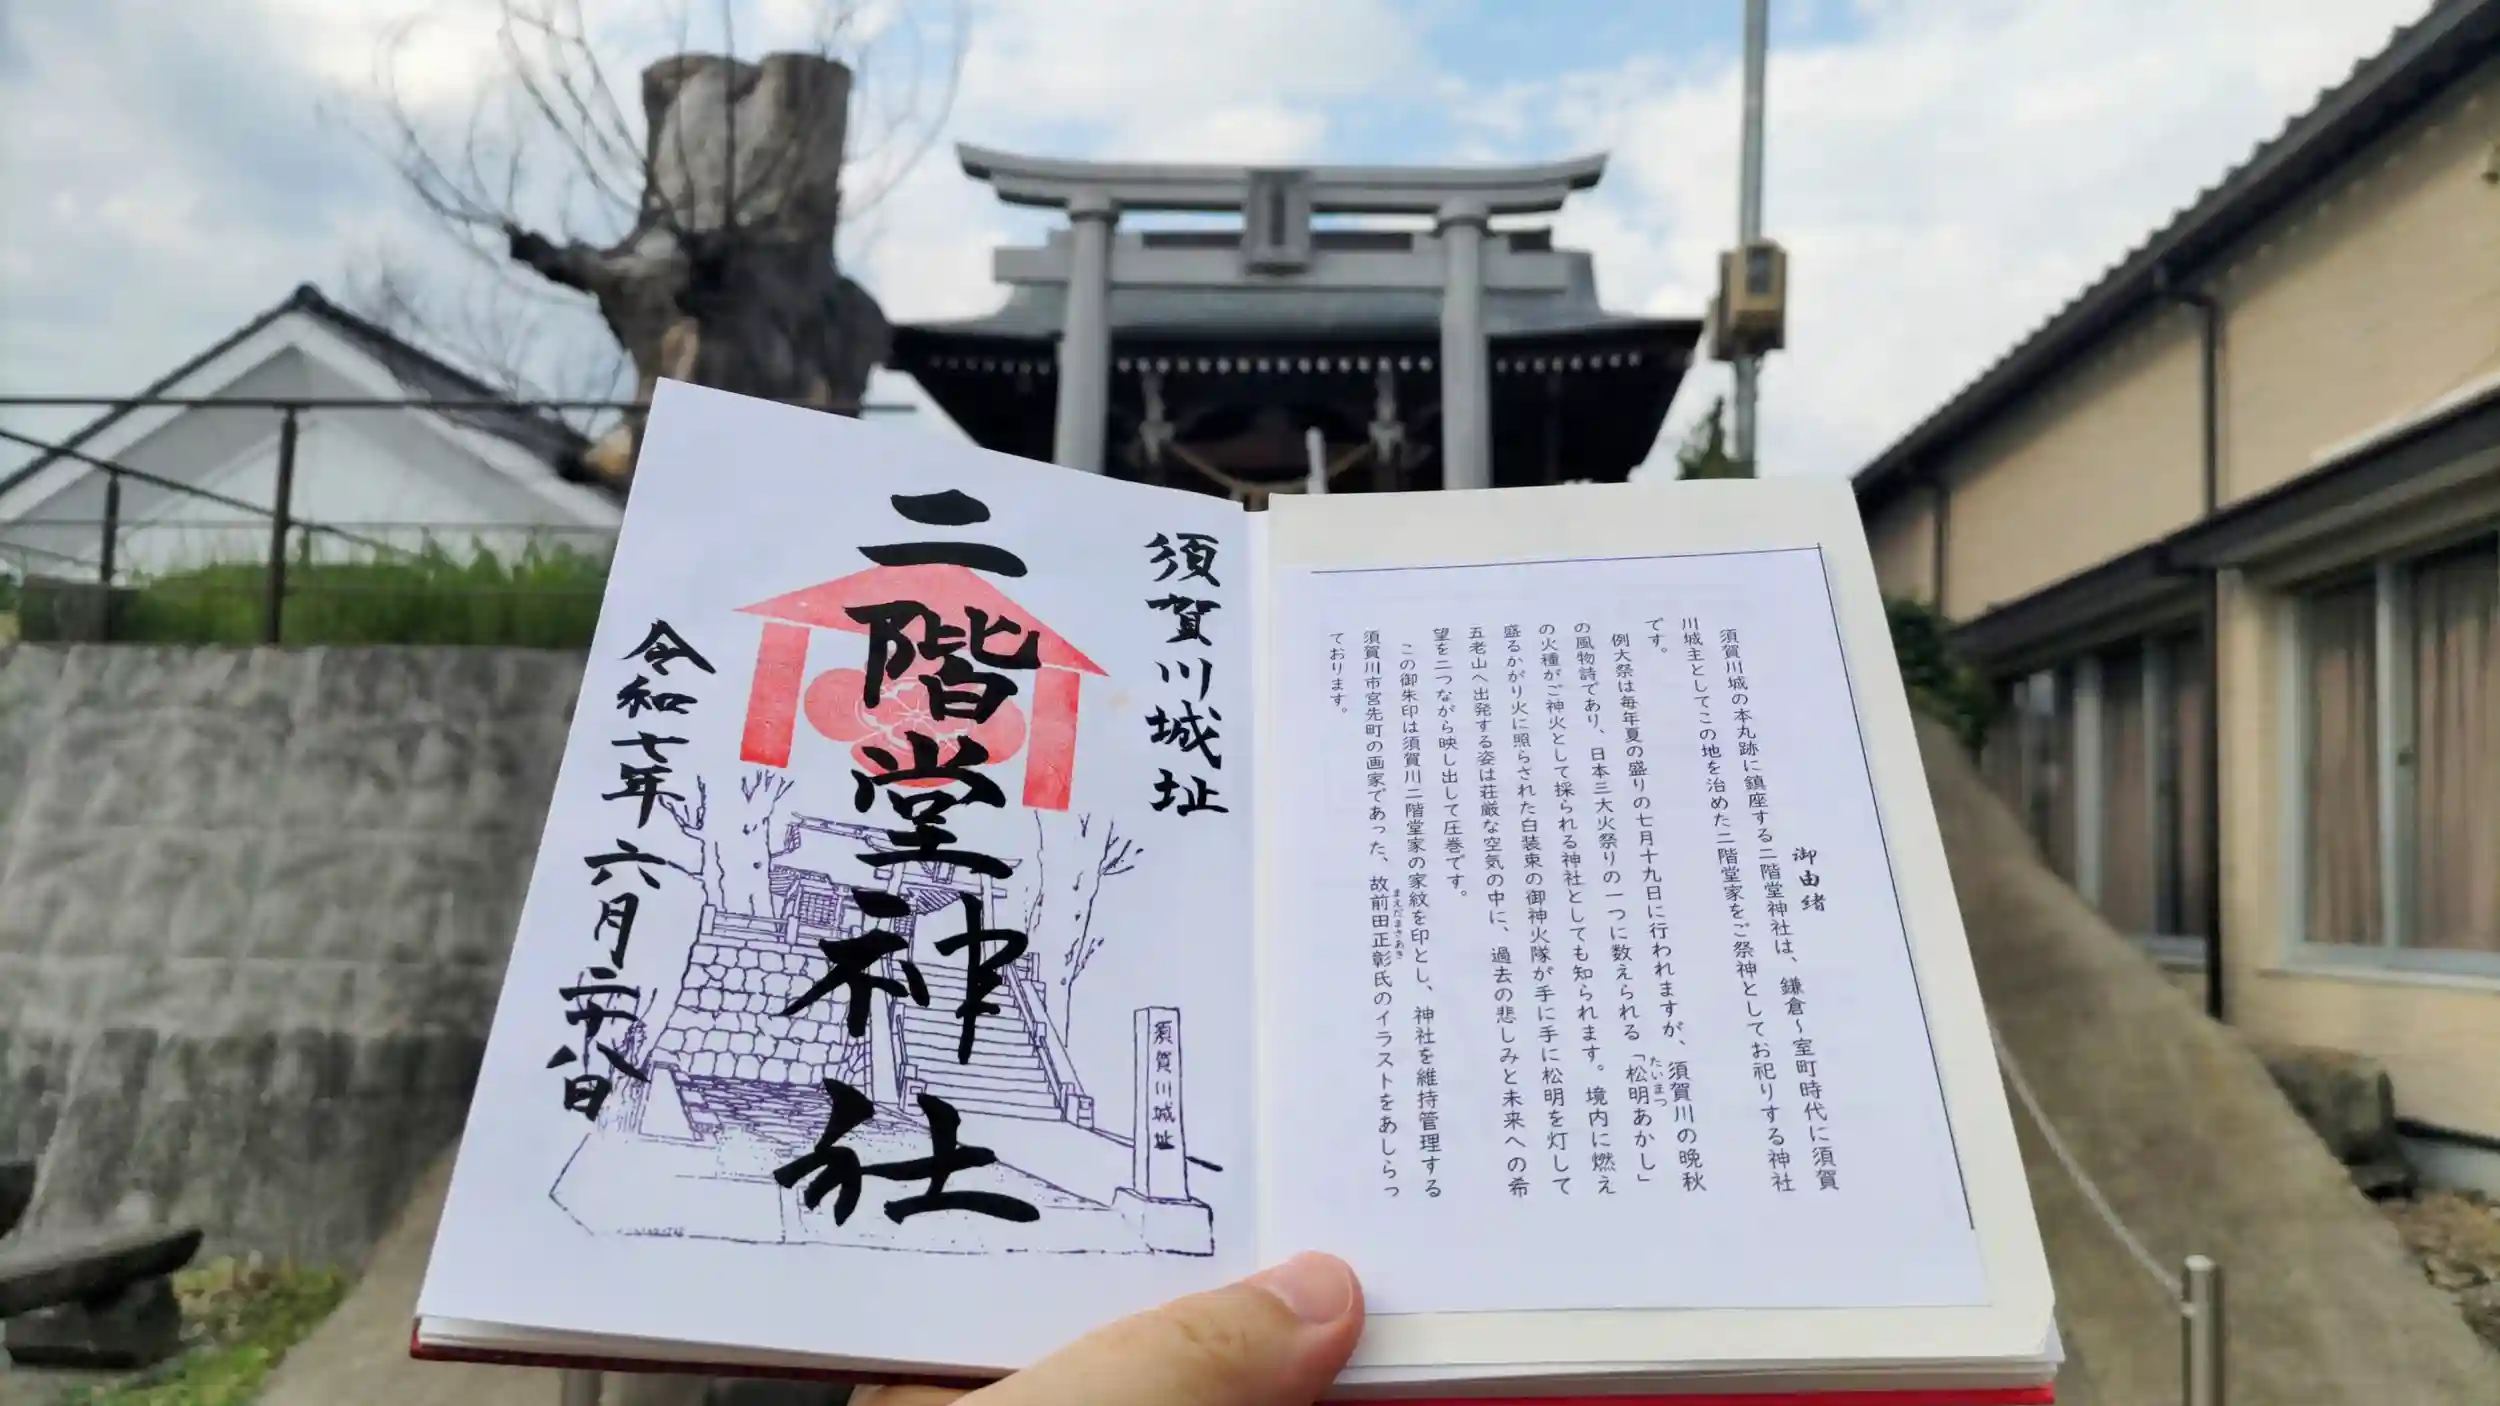 須賀川城址
二階堂神社
令和七年 六月二十八日
須賀川城址
御由緒
須賀川城の本丸跡に鎮座する二階堂神社は、鎌倉～室町時代に須賀
川城主としてこの地を治めた二階堂家をご祭神としてお祀りする神社
です。
例大祭は毎年夏の盛りの七月十九日に行われますが、須賀川の晩秋
の風物詩であり、日本三大火祭りの一つに数えられる「松明あかし」
たいまつ
の火種がご神火として採られる神社としても知られます。境内に燃え
盛るかがり火に照らされた白装束の御神火隊が手に手に松明を灯して
五老山へ出発する姿は荘厳な空気の中に、過去の悲しみと未来への希
望を二つながら映し出して圧巻です。
この御朱印は須賀川二階堂家の家紋を印とし、神社を維持管理する
須賀川市宮先町の画家であった、故前田正彰氏のイラストをあしらっ
まえだまさあき
ております。